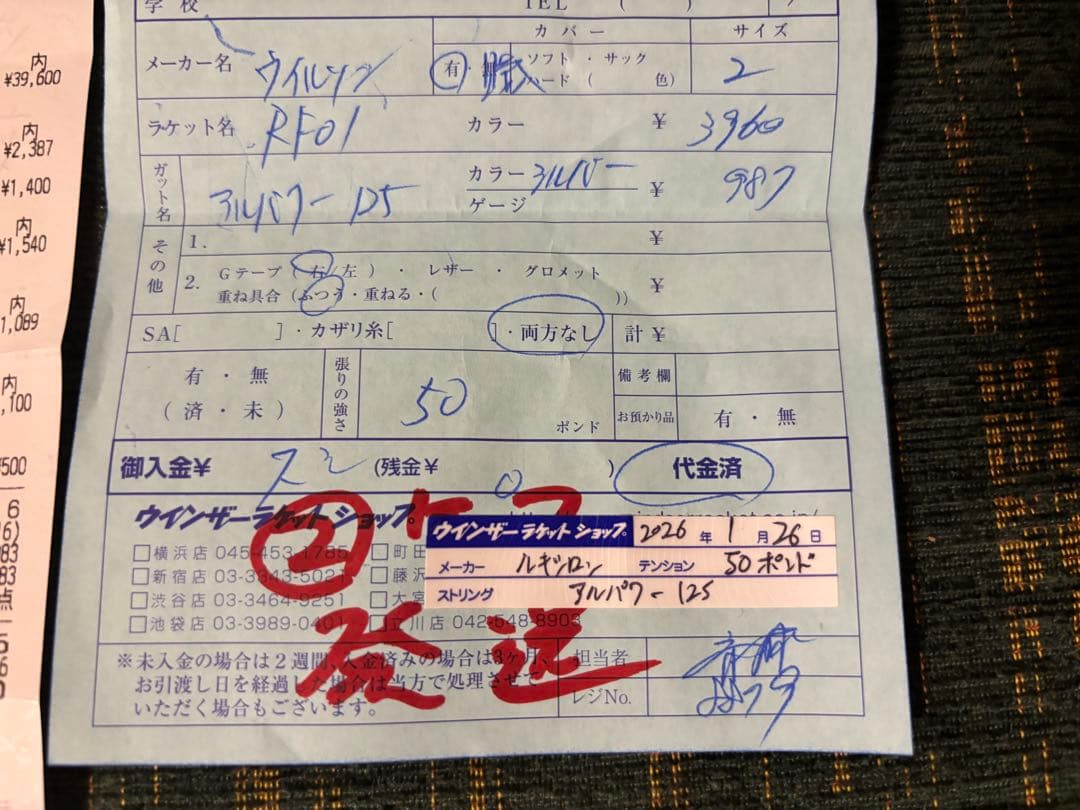 内
¥39,600
内
¥2,387
¥1,400
内
¥1,540
内
1,089
内
,100
¥500
6
6)
383
383
点
学校 TEL ( )
メーカー名 ウイルソン カバー 有・無 ソフト・サック ハード ( 色) サイズ 2
ラケット名 RF01 カラー ¥ 3960
ガット名 アルパワー 125 カラー シルバー ゲージ ¥ 987
その他 1. ¥
2. Gテープ (右/左)・レザー・グロメット
重ね具合 (ふつう・重ねる・( )) ¥
SA[ ]・カザリ糸[ ]・両方なし 計 ¥
有・無
(済・未)
張りの強さ 50 ポンド
備考欄
お預かり品 有・無
御入金¥ スミ (残金¥ 0 ) 代金済
ウインザーラケットショップ
②
発送
□横浜店 045-453-1785 □町田
□新宿店 03-3343-5021 □藤沢
□渋谷店 03-3464-9251 □大宮
□池袋店 03-3989-0401 □立川店 042-548-8903
ウインザーラケットショップ 2026年1月26日
メーカー ルキシロン テンション 50ポンド
ストリング アルパワー125
※未入金の場合は2週間、入金済みの場合は3ヶ月、
お引渡し日を経過した場合は当方で処理させて
いただく場合もございます。
担当者
レジNo.